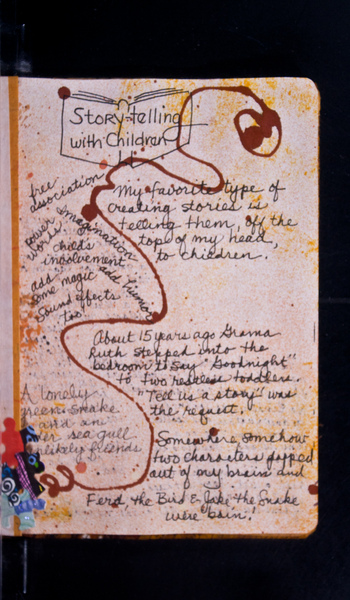 Story-telling
with Children
free
association
imagination
world
child's
involvement
and humor
add
some magic
sound effects
too.
My favorite type of
creating stories is
telling them, off the
top of my head,
to children.
About 15 years ago Grama
Ruth stepped into the
bedroom to say "Goodnight"
to two restless toddlers.
"Tell us a story" was
the request.
A lonely
green snake
and an
sea gull
friends
Somewhere somehow
two characters popped
out of my brain and
Ferd, the Bird & Jake the Snake
were born!